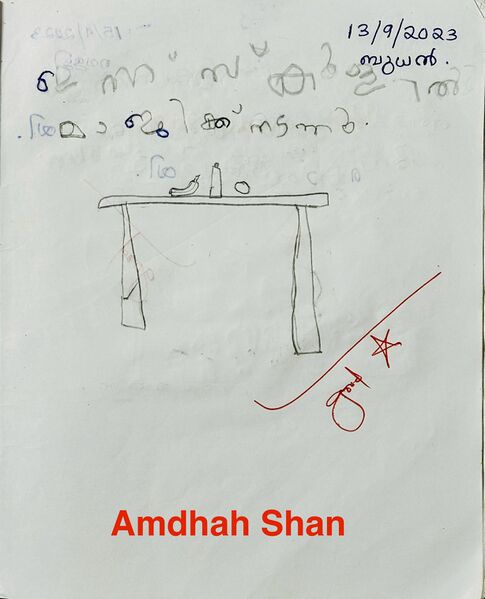 13/9/2023
ബുധൻ.
ഇന്ന് സ്കൂളിൽ
മാജിക്ക് നടന്നു.
good
Amdhah Shan